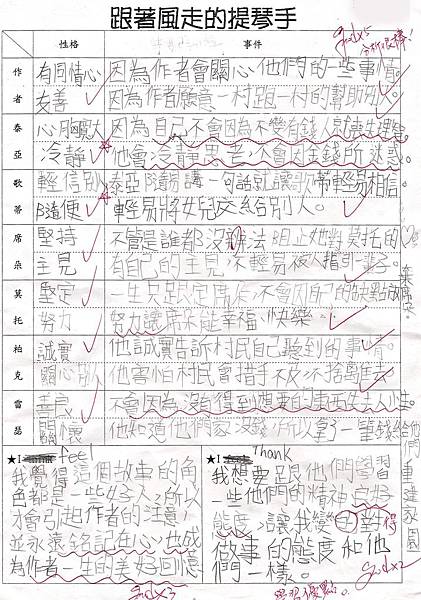 跟著風走的提琴手
性格 事件
good x5
分析很棒！
作者 有同情心 因為作者會關心他們的一些事情。
友善 因為作者願意一村跟一村的幫助別人。
泰亞 心胸寬大 因為自己不會因為不變有錢人就喪失理智
冷靜 他會冷靜思考不會太金錢所迷惑。
歌蒂 輕信別人 泰亞隨易講一句話就讓歌蒂輕易相信。
隨便 輕易將女兒交給別人。
席朵 堅持 不管是誰都沒辦法阻止她對莫托的心意。
主見 有自己的主見，不輕易被人指引一輩子。
莫托 堅定 一生只跟定席朵，不會因自己的缺點放棄席朵。
努力 努力讓席朵能幸福、快樂。
柏克 誠實 他誠實告訴村民自己聽到的事情。
關心別人 他害怕村民會措手不及
雷瑟 善良 不會因為沒有得到想要的東西失去人性。
關懷 他知道他們 拿了一筆錢給他們重建家園
★I feel
我覺得這個故事的角
色都是一些好人，所以
才會引起作者的注意，
並永遠銘記在心也成
為作者一生的美好回憶
good x3
★I Thank
我想要跟他們學習
一些他們的精神良好
態度，讓我變的對得
做事的態度和他
們一樣。
學習優點。
good x2